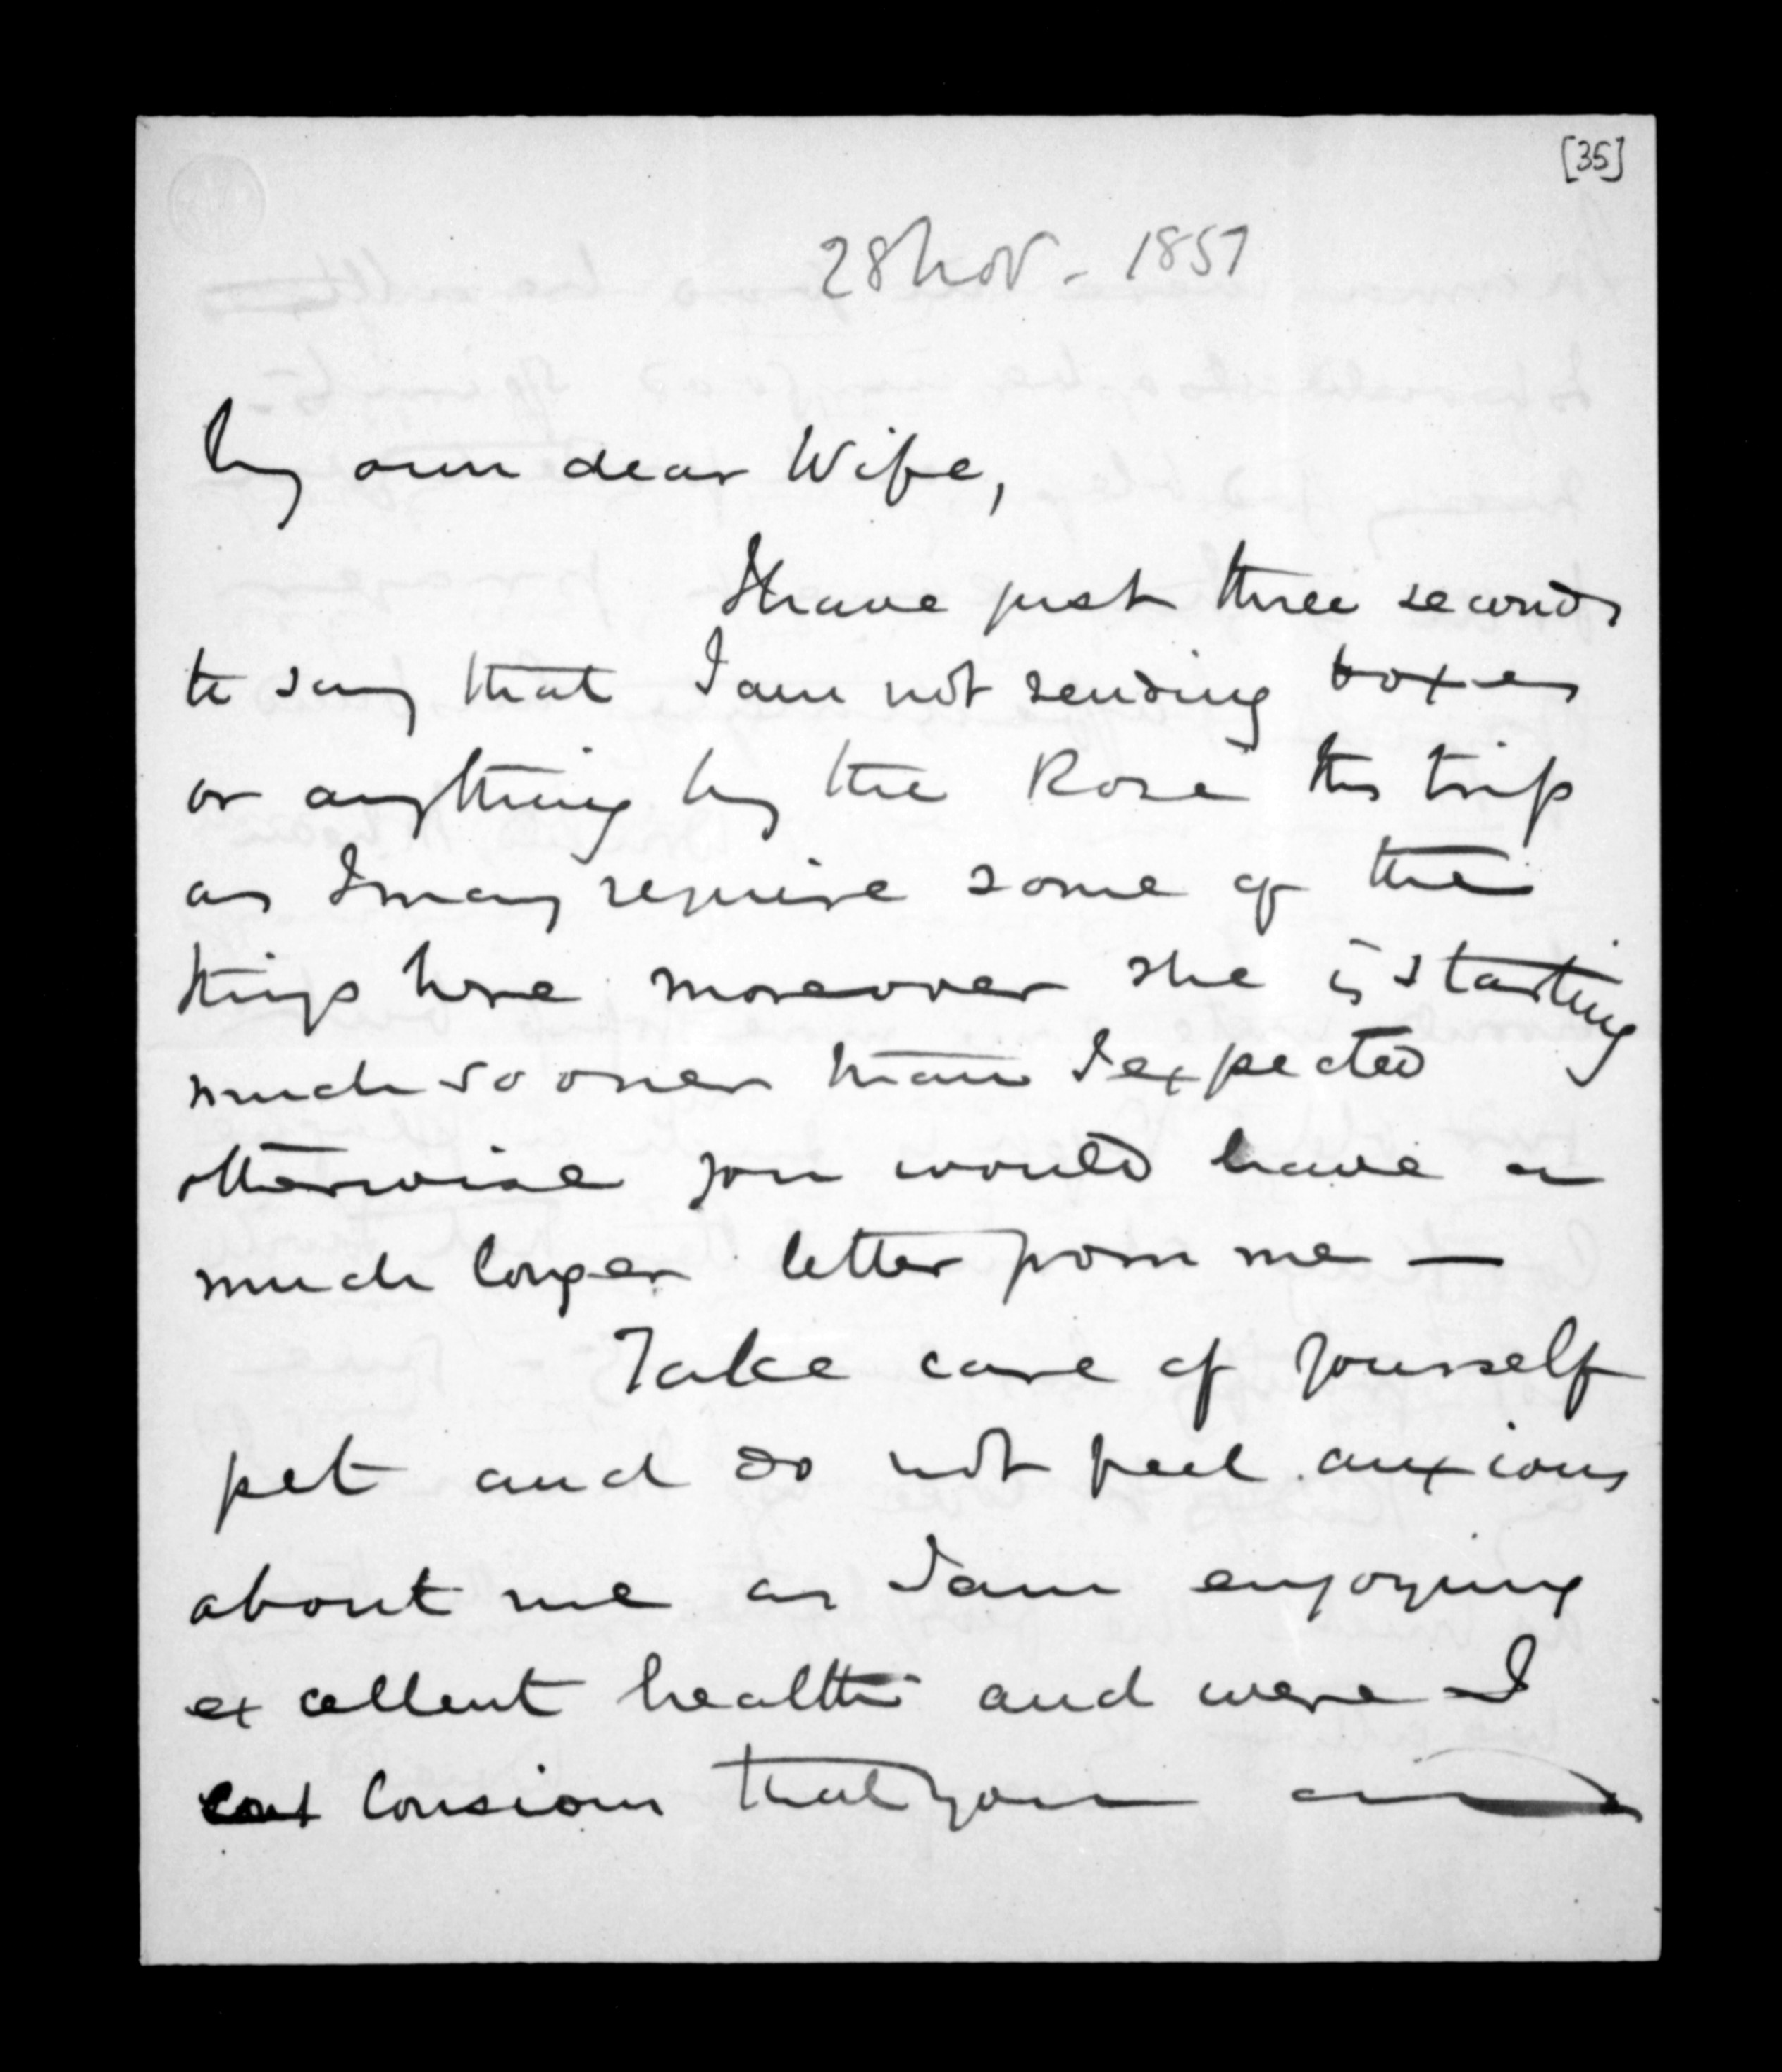 [35]
28 Nov - 1857
My own dear Wife,
I have just three seconds
to say that I am not sending boxes
or anything by the Rose this trip
as I may require some of the
things here moreover she is starting
much sooner than I expected
otherwise you would have a
much longer letter from me —
Take care of yourself
pet and do not feel anxious
about me as I am enjoying
excellent health and were I
Consious that you and